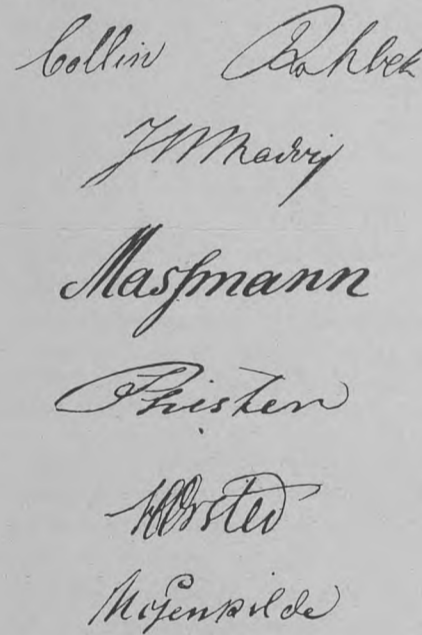 Collin Rahbek
J N Madvig
Massmann
Phister
HC Ørsted
Mozenkilde